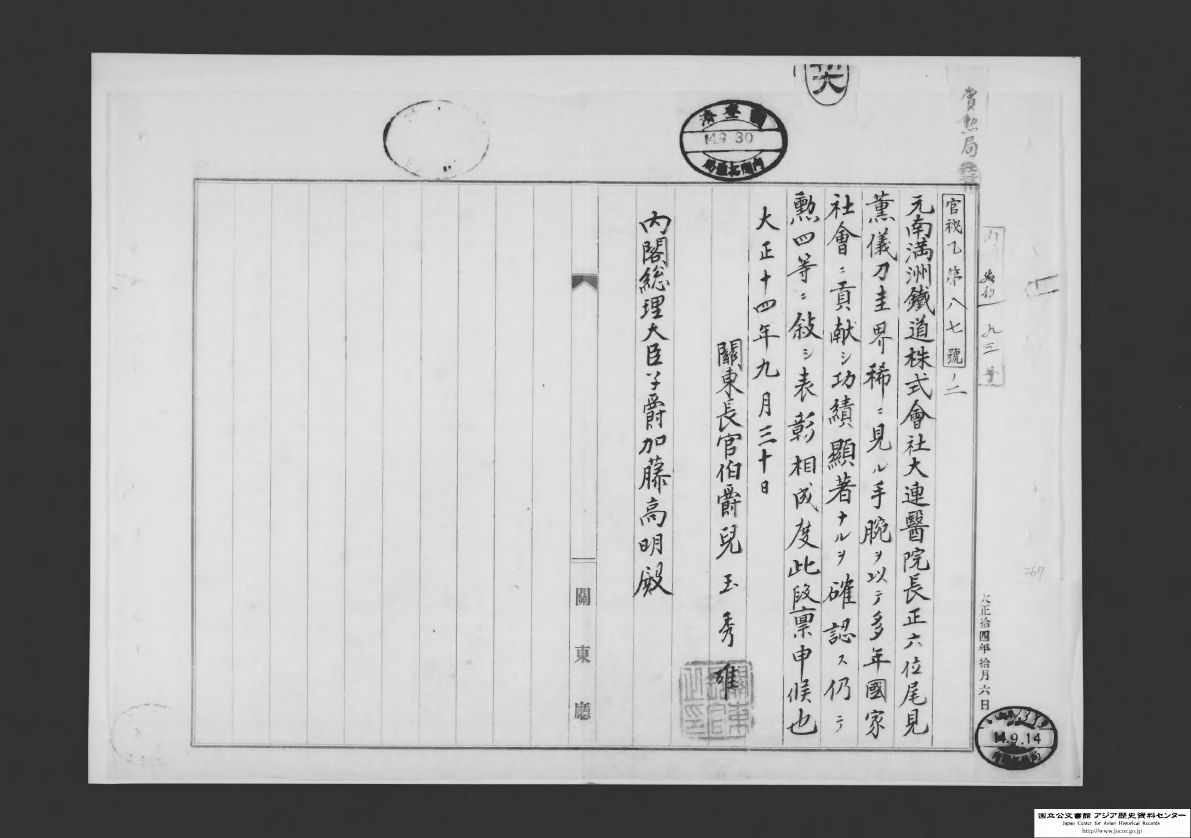 賞勲局
官秘乙第八七號ノ二
元南満洲鐵道株式會社大連醫院長正六位尾見
薫儀刀圭界稀ニ見ル手腕ヲ以テ多年國家
社會ニ貢献シ功績顯著ナルヲ確認ス仍テ
勲四等ニ敍シ表彰相成度此段禀申候也
大正十四年九月三十日
關東長官伯爵兒玉秀雄
内閣総理大臣子爵加藤高明殿
關東廳
九三
大正拾四年拾月六日
14.9.14
14.9.30
267
国立公文書館 アジア歴史資料センター
Japan Center for Asian Historical Records
http://www.jacar.go.jp